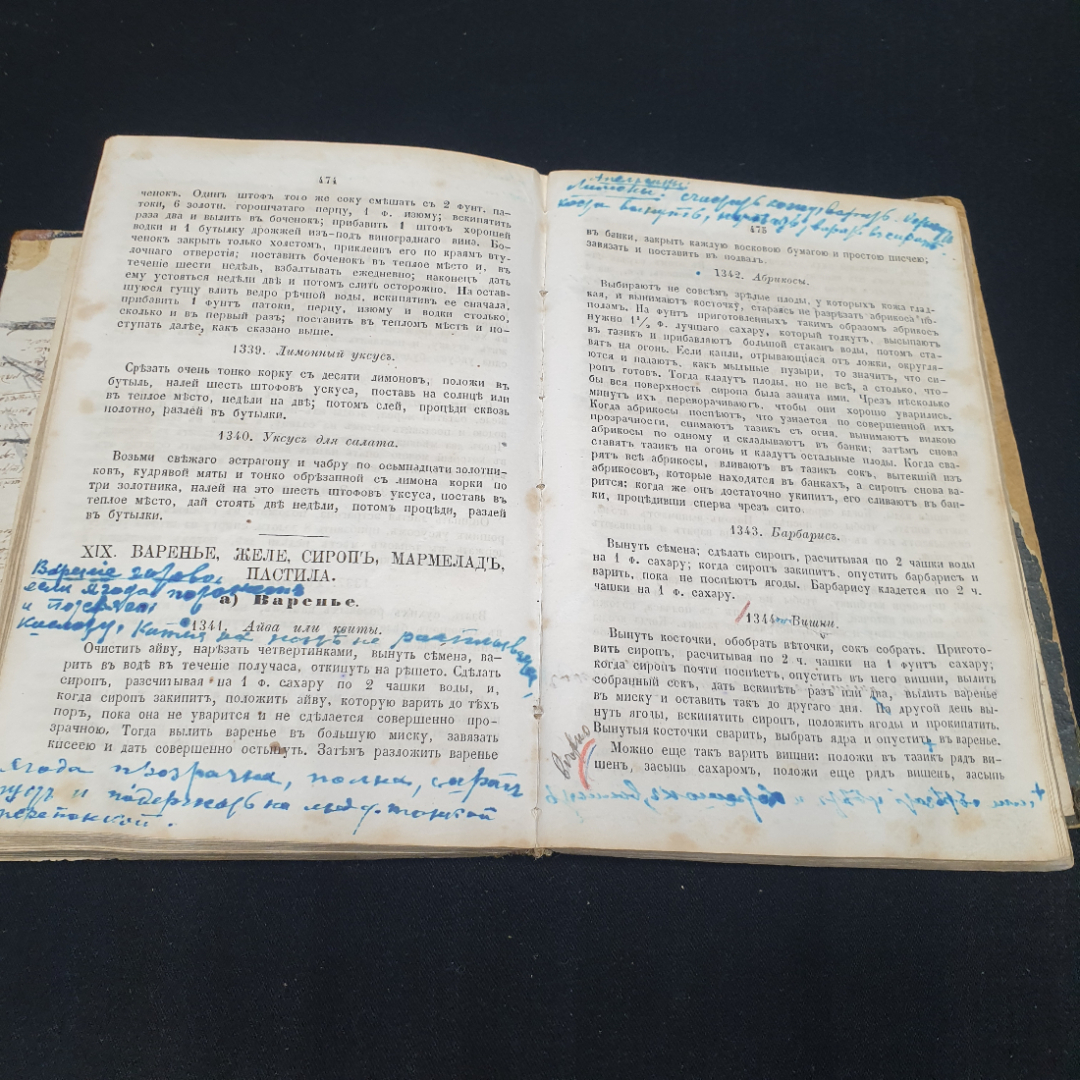 474
ченокъ. Одинъ штофъ того же соку смѣшать съ 2 фунт. па-
токи, 6 золотн. горошчатаго перцу, 1 ф. изюму; вскипятить
раза два и вылить въ боченокъ; прибавить 1 штофъ хорошей
водки и 1 бутылку дрожжей изъ-подъ винограднаго вина. Бо-
ченокъ закрыть только холстомъ, приклеивъ его по краямъ вту-
лочнаго отверстія; поставить боченокъ въ теплое мѣсто и, въ
теченіе шести недѣль, взбалтывать ежедневно; наконецъ дать
ему устояться недѣли двѣ и потомъ слить осторожно. На остав-
шуюся гущу влить ведро рѣчной воды, вскипятивъ ее сначала,
прибавить 1 фунтъ патоки, перцу, изюму и водки столько,
сколько и въ первый разъ; поставить въ тепломъ мѣстѣ и по-
ступать далѣе, какъ сказано выше.
1339. Лимонный уксусъ.
Срѣзать очень тонко корку съ десяти лимоновъ, положи въ
бутыль, налей шесть штофовъ уксуса, поставь на солнцѣ или
въ теплое мѣсто, недѣли на двѣ; потомъ слей, процѣди сквозь
полотно, разлей въ бутылки.
1340. Уксусъ для салата.
Возьми свѣжаго эстрагону и чабру по осьмнадцати золотни-
ковъ, кудрявой мяты и тонко обрѣзанной съ лимона корки по
три золотника, налей на это шесть штофовъ уксуса, поставь въ
теплое мѣсто, дай стоять двѣ недѣли, потомъ процѣди, разлей
въ бутылки.
XIX. ВАРЕНЬЕ, ЖЕЛЕ, СИРОПЪ, МАРМЕЛАДЪ,
ПАСТИЛА.
Вареніе готово,
если ягода
а) Варенье.
и
1341. Айва или квиты.
на не
Очистить айву, нарѣзать четвертинками, вынуть сѣмена, ва-
рить въ водѣ въ теченіе получаса, откинуть на рѣшето. Сдѣлать
сиропъ, разсчитывая на 1 ф. сахару по 2 чашки воды, и,
когда сиропъ закипитъ, положить айву, которую варить до тѣхъ
поръ, пока она не уварится и не сдѣлается совершенно про-
зрачною. Тогда вылить варенье въ большую миску, завязать
кисеею и дать совершенно остынуть. Затѣмъ разложить варенье
Ягода прозрачна, полна,
и подержать на льду
475
въ банки, закрыть каждую восковою бумагою и простою писчею;
завязать и поставить въ подвалъ.
1342. Абрикосы.
Выбираютъ не совсѣмъ зрѣлые плоды, у которыхъ кожа глад-
кая, и вынимаютъ косточку, стараясь не разрѣзать абрикоса по-
поламъ. На фунтъ приготовленныхъ такимъ образомъ абрикосъ
нужно 1½ ф. лучшаго сахару, который толкутъ, высыпаютъ
въ тазикъ и прибавляютъ большой стаканъ воды, потомъ ста-
вятъ на огонь. Если капли, отрывающіяся отъ ложки, округля-
ются и падаютъ, какъ мыльные пузыри, то значитъ, что си-
ропъ готовъ. Тогда кладутъ плоды, но не всѣ, а столько, что-
бы вся поверхность сиропа была занята ими. Чрезъ нѣсколько
минутъ ихъ переворачиваютъ, чтобы они хорошо уварились.
Когда абрикосы поспѣютъ, что узнается по совершенной ихъ
прозрачности, снимаютъ тазикъ съ огня, вынимаютъ вилкою
абрикосы по одному и складываютъ въ банки; затѣмъ снова
ставятъ тазикъ на огонь и кладутъ остальные плоды. Когда сва-
рятъ всѣ абрикосы, вливаютъ въ тазикъ сокъ, вытекшій изъ
абрикосовъ, которые находятся въ банкахъ, а сиропъ снова ва-
рится; когда же онъ достаточно укипитъ, его сливаютъ въ бан-
ки, процѣдивши сперва чрезъ сито.
1343. Барбарисъ.
Вынуть сѣмена; сдѣлать сиропъ, расчитывая по 2 чашки воды
на 1 ф. сахару; когда сиропъ закипитъ, опустить барбарисъ и
варить, пока не поспѣютъ ягоды. Барбарису кладется по 2 ч.
чашки на 1 ф. сахару.
1344. Вишни.
Вынуть косточки, обобрать вѣточки, сокъ собрать. Пригото-
вить сиропъ, расчитывая по 2 ч. чашки на 1 фунтъ сахару;
когда сиропъ почти поспѣетъ, опустить въ него вишни, вылить
собранный сокъ, дать вскипѣть разъ или два, вылить варенье
въ миску и оставить такъ до другаго дня. На другой день вы-
нуть ягоды, вскипятить сиропъ, положить ягоды и прокипятить.
Вынутыя косточки сварить, выбрать ядра и опустить въ варенье.
Можно еще такъ варить вишни: положи въ тазикъ рядъ ви-
шенъ, засыпь сахаромъ, положи еще рядъ вишень, засыпь